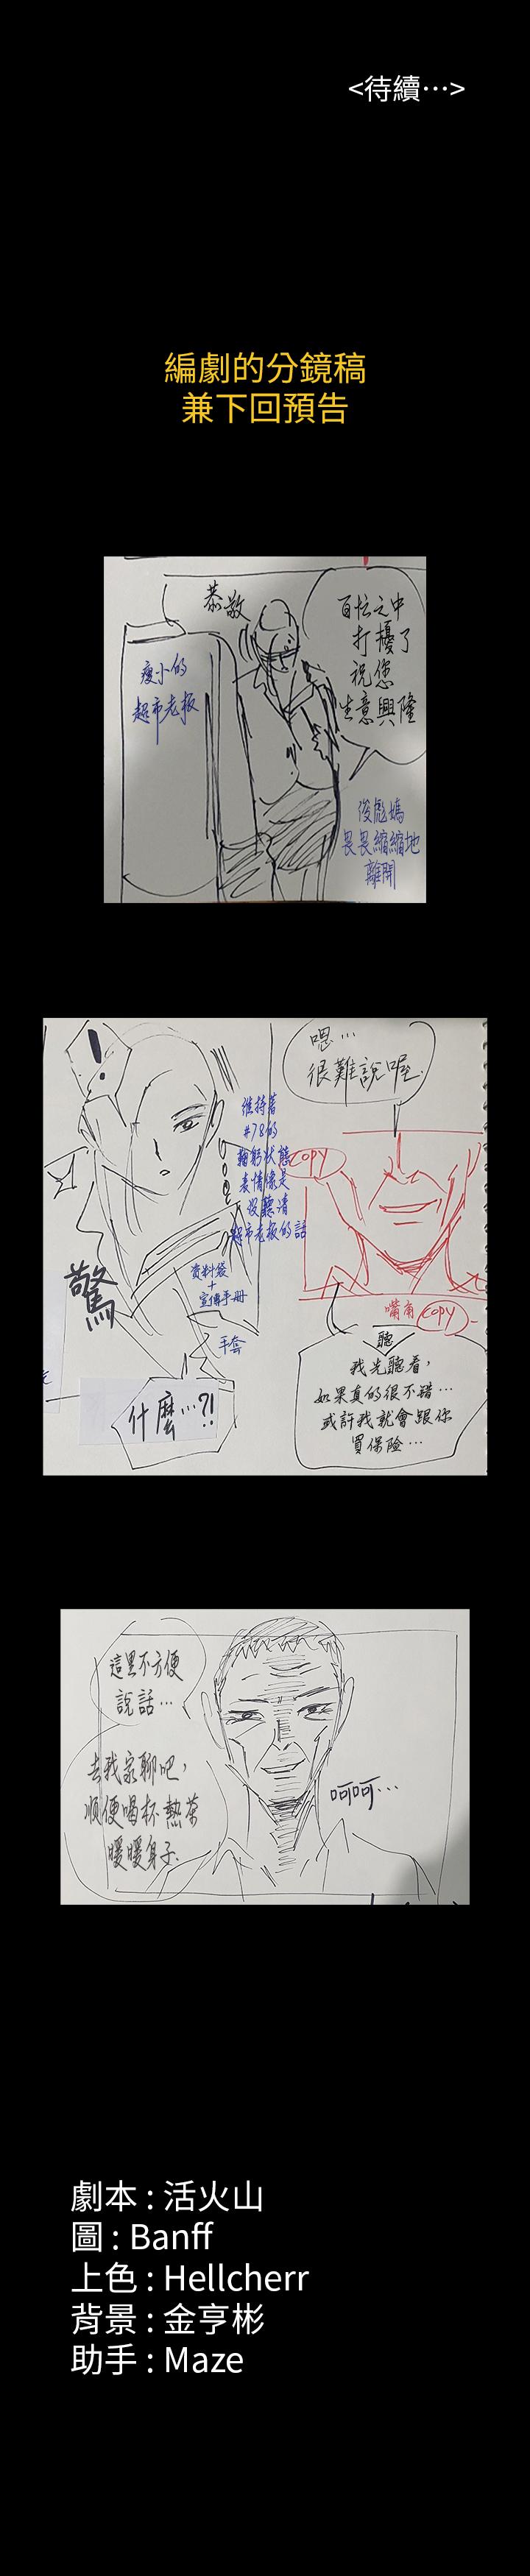 <待續…>
編劇的分鏡稿
兼下回預告
恭敬
百忙之中
打擾了
祝您
生意興隆
瘦小的
超市老板
俊彪媽
畏畏縮縮地
離開
!
嗯…
很難說喔.
維持著
#78的
鞠躬狀態
表情像是
沒聽清
超市老板的話
COPY
驚
資料袋
+
宣傳手冊
手套
嘴角 COPY
什麼…?!
聽
我先聽看,
如果真的很不錯…
或許我就會跟你
買保險…
這里不方便
說話…
去我家聊吧,
順便喝杯熱茶
暖暖身子.
呵呵…
劇本 : 活火山
圖 : Banff
上色 : Hellcherr
背景 : 金亨彬
助手 : Maze